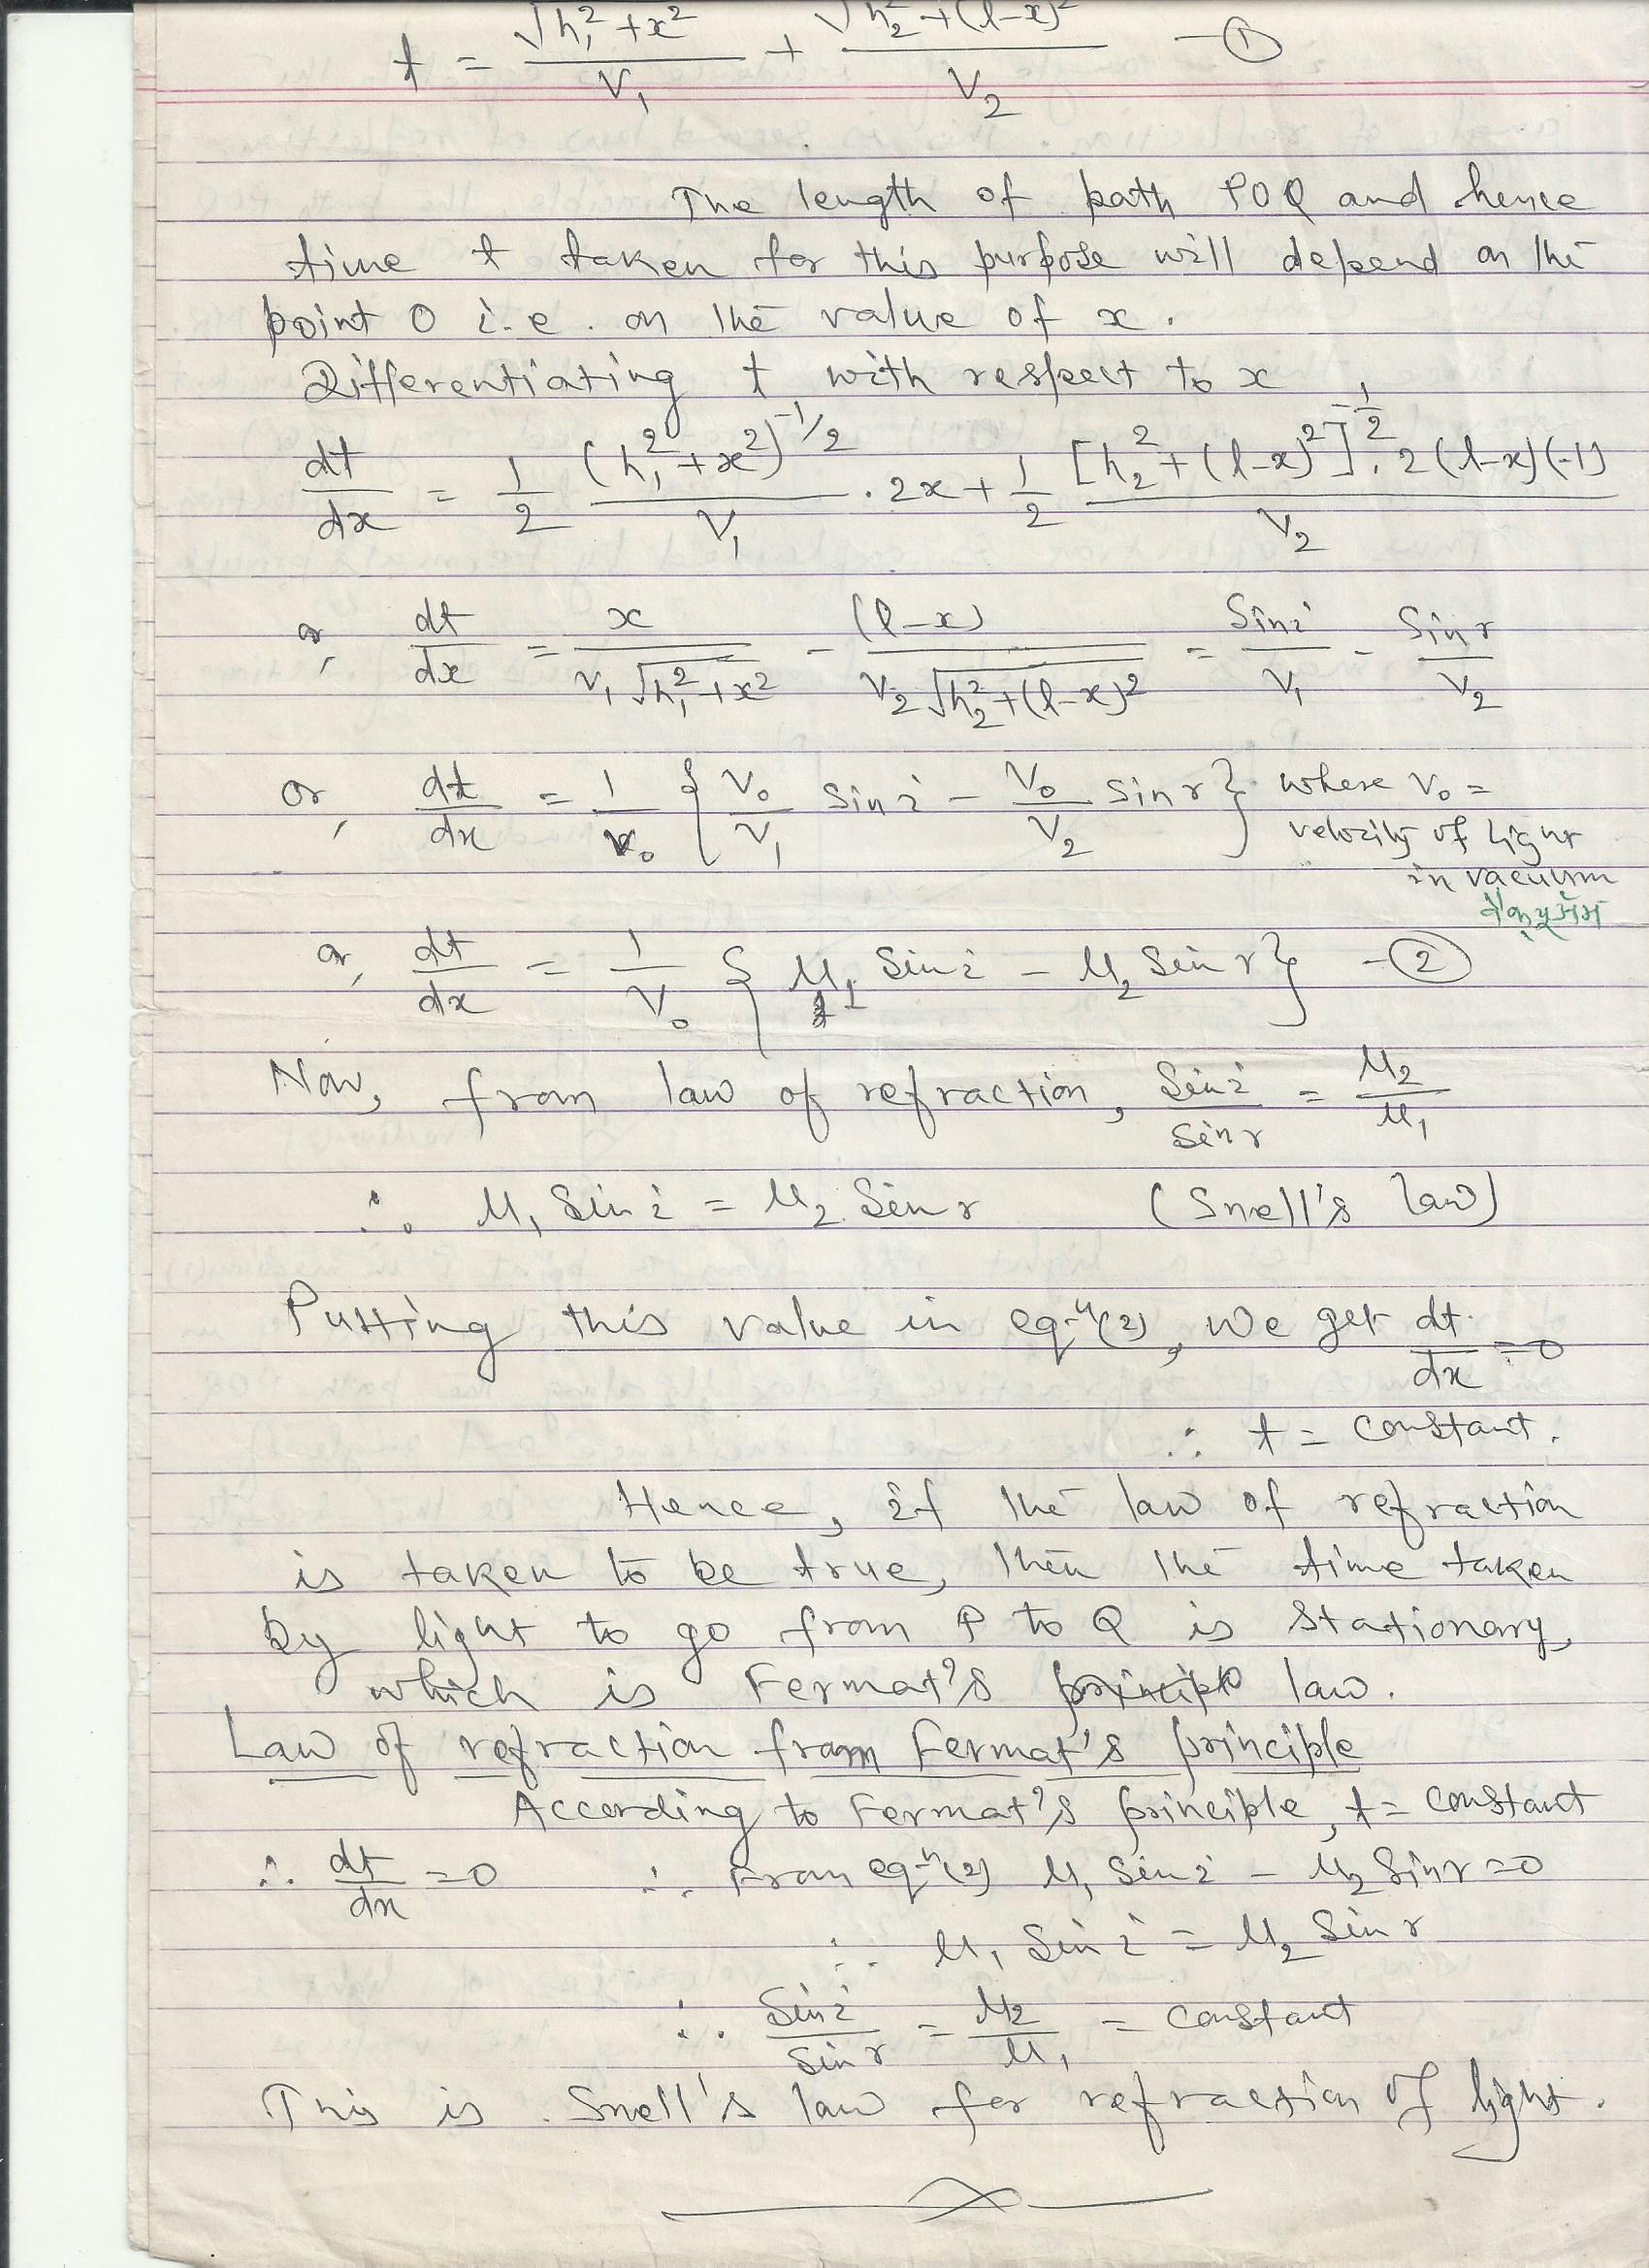 t = √h₁²+x² / V₁ + √h₂²+(l-x)² / V₂ — ①
The length of path POQ and hence
time t taken for this purpose will depend on the
point O i.e. on the value of x.
Differentiating t with respect to x
dt/dx = 1/2 (h₁²+x²)^-1/2 / V₁ . 2x + 1/2 [h₂²+(l-x)²]^-1/2 . 2(l-x)(-1) / V₂
or, dt/dx = x / V₁√h₁²+x² - (l-x) / V₂√h₂²+(l-x)² = Sin i / V₁ - Sin r / V₂
or, dt/dx = 1/V₀ { V₀/V₁ Sin i - V₀/V₂ Sin r } where V₀ =
velocity of light
in vacuum
वैक्यूमम
or, dt/dx = 1/V₀ { μ₁ Sin i - μ₂ Sin r } — ②
Now, from law of refraction, Sin i / Sin r = μ₂/μ₁
∴ μ₁ Sin i = μ₂ Sin r (Snell's law)
Putting this value in eqⁿ(2), we get dt/dx = 0
∴ t = constant.
Hence, if the law of refraction
is taken to be true, then the time taken
by light to go from P to Q is stationary,
which is Fermat's principle law.
Law of refraction from Fermat's principle
According to Fermat's principle, t = constant
∴ dt/dx = 0 ∴ From eqⁿ(2) μ₁ Sin i - μ₂ Sin r = 0
∴ μ₁ Sin i = μ₂ Sin r
∴ Sin i / Sin r = μ₂/μ₁ = constant
This is Snell's law for refraction of light.